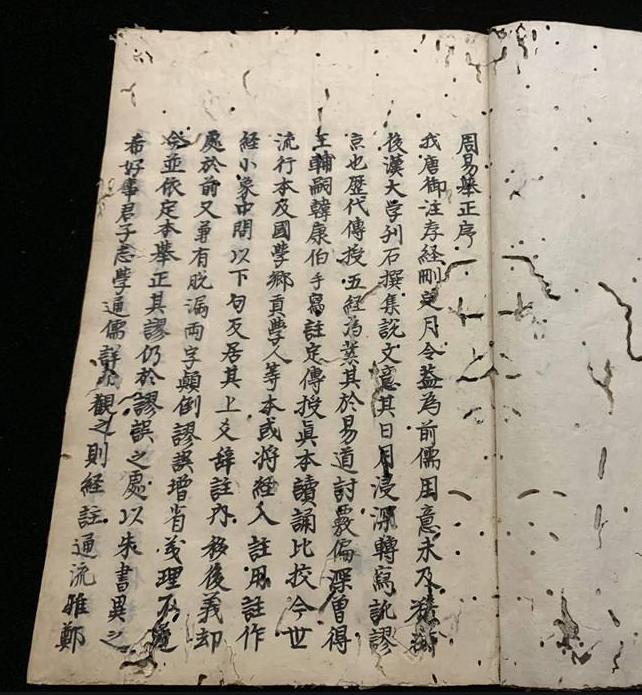 周易舉正序
我唐御注存経刪定月令蓋為前儒用意未及
後漢大学刋石撰集説文意其日月浸深轉寫訛謬
京也歴代傳授五経為業其於易道討覈偏深曽得
王輔嗣韓康伯手寫註定傳授眞本讀誦比挍今世
流行本及國學郷貢學人等本或将経入註用註作
経小象中間以下句反居其上爻辞註内移後義却
處於前又兼有脱漏両字顛倒謬誤増省義理不
今並依定本舉正其謬仍於謬誤之處以朱書異之
希好事君子志學通儒詳觀之則経註通流雅鄭